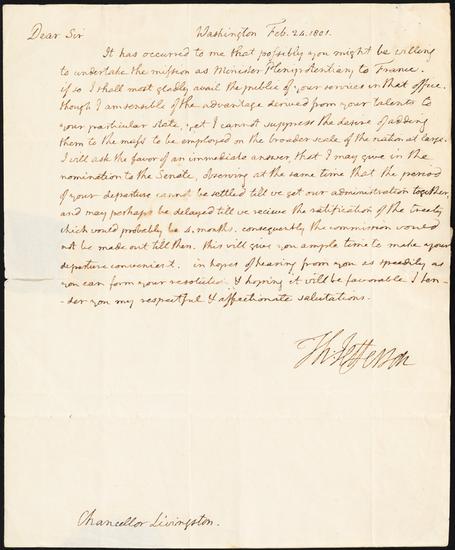 Dear Sir Washington Feb. 24. 1801.
It has occurred to me that possibly you might be willing
to undertake the mission as Minister Plenipotentiary to France.
if so I shall most gladly avail the public of your services in that office.
though I am sensible of the advantage derived from your talents to
your particular state, yet I cannot suppress the desire of adding
them to the mass to be employed on the broader scale of the nation at large.
I will ask the favor of an immediate answer, that I may give in the
nomination to the Senate, observing at the same time that the period
of your departure cannot be settled till we get our administration together,
and may perhaps be delayed till we recieve the ratification of the treaty
which would probably be 4. months. consequently the commission would
not be made out till then. this will give you ample time to make your
departure convenient. in hopes of hearing from you as speedily as
you can form your resolution, & hoping it will be favorable I ten-
-der you my respectful & affectionate salutations.
Th: Jefferson
Chancellor Livingston.